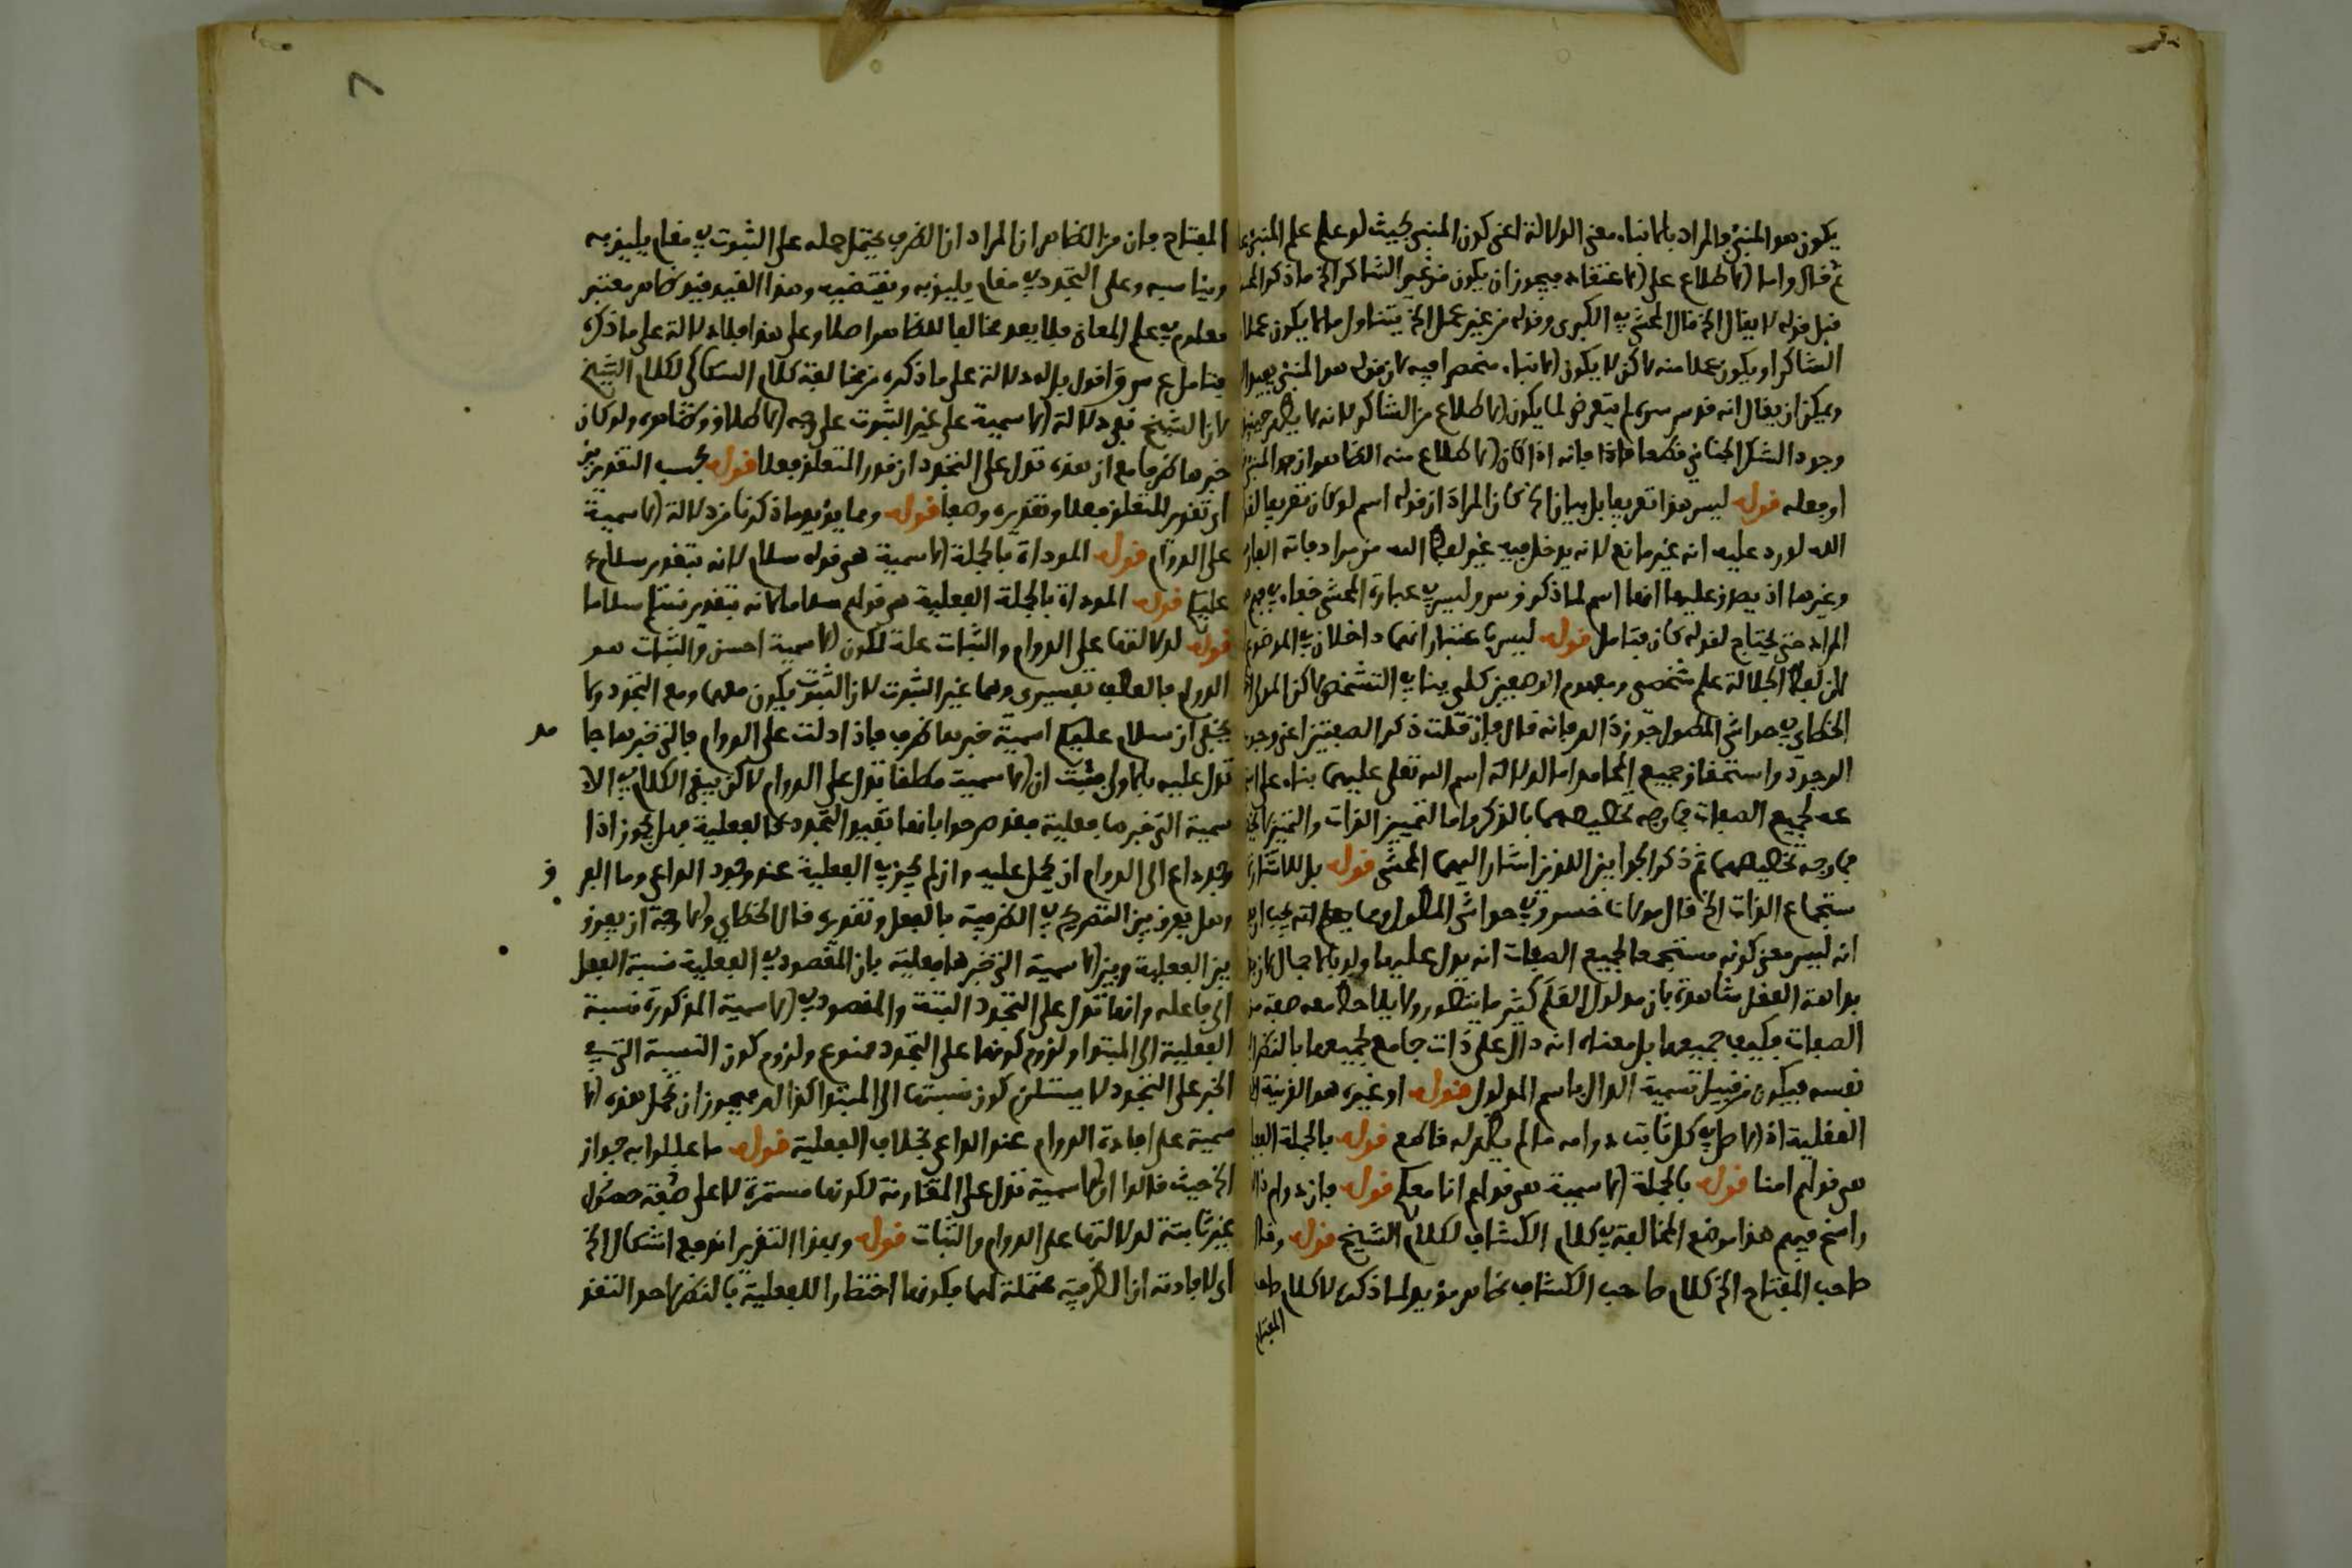 يكون هو المنبئ والمراد بالانباء معنى الدلالة اعنى كون المنبئ بحيث لو علم علم المنبئ
ثم قال واما الاطلاع على الاعتقاد فيجوز ان يكون من غير الشاكر الخ ما ذكر
قبل قوله لا يقال الخ قال المحشى في الكبرى وقوله من غير عمل الخ يتناول ما لا يكون عملا
الشاكر او يكون عملا منه لاكن لا يكون الانباء منحصرا فيه لان قوله هو المنبئ يفيد
ويمكن ان يقال انه قدس سره لم يتعرض لما يكون الاطلاع من الشاكر لانه لا يظهر حينئذ
وجود الشكر الجنانى قطعا فاذا فانه اذا كان الاطلاع منه الظاهر ان هو المنبئ
او جعله قوله ليس هذا تعريفا بل بيان الخ كان المراد ان قوله اسم لو كان تعريفا
الله لورد عليه انه غير مانع لانه يدخل فيه غير لفظ الله من مرادفاته
وغيرها اذ يصدق عليها انها اسم لما ذكر قدس سره وليس في عبارة المحشى خفاء في
المراد حتى يحتاج لقوله كان فتامل قوله ليس باعتبار انهما داخلان في الموضوع
لان لفظ الجلالة علم شخصى ومفهوم الوصفين كلى ينافى التشخص لاكن
الخطاى في حواشى المطول جوز ذالك فانه قال فان قلت ذكر الصفتين اعنى وجوب
الوجود واستحقاق جميع المحامد اما لدلالة اسم الله تعلى عليهما بناء على
عه لجميع الصفات فما وجه تخصيصهما بالذكر واما لتمييز الذات والتمييز
فما وجه تخصيصهما ثم ذكر الجوابين اللذين اشار اليهما المحشى قوله بل للاشارة
ستجماع الذات الخ قال مولانا خسرو في حواشى المطول ومما يجب
انه ليس معنى كونه مستجمعا لجميع الصفات انه يدل عليها ولو بالاجمال
بداهة العقل شاهدة بان مدلول العلم كثير ما يتصور ولا يلاحظ معه صفة من
الصفات فكيف جميعها بل معناه انه دال على ذات جامع لجميعها بالنظر
نفسه فيكون من قبيل تسمية الدال باسم المدلول قوله او غيره هو القرينة
العقلية اذ الاصل في كل ثابت دوامه ما لم يظهر له قاطع قوله بالجملة
هى قولهم امنا قوله بالجملة الاسمية هى قولهم انا معكم قوله فان دوام
راسخ فيهم هذا موضع المخالفة في كلام الكشاف لكلام الشيخ قوله وقال
صاحب المفتاح الخ كلام صاحب الكشاف ظاهر مؤيد لما ذكره لا كلام صاحب
المفتاح
المفتاح فان من الظاهر ان المراد ان الظرف يحتمل حمله على الثبوت في مقام يليق به
ويناسبه وعلى التجدد في مقام يليق به ويقتضيه وهذا القيد قيد ظاهر معتبر
معلوم في علم المعانى فلا يعد مخالفا للظاهر اصلا وعلى هذا فلا دلالة على ما ذكره
فتامل واقول بل له دلالة على ما ذكره من مخالفة كلام السكاكى لكلام الشيخ
لان الشيخ نفى دلالة الاسمية على غير الثبوت على وجه الاطلاق وظاهره ولو كان
خبرها ظرفا مع ان هذه تدل على التجدد ان قدر المتعلق فعلا قوله بحسب التقديرين
اى تقدير المتعلق فعلا وتقديره وصفا قوله ومما يؤيد ما ذكرنا من دلالة الاسمية
على الدوام قوله المؤداة بالجملة الاسمية هى قوله سلام لانه بتقدير سلام
عليكم قوله المؤداة بالجملة الفعلية هى قولهم سلاما لانه بتقدير نسلم سلاما
قوله لدلالتها على الدوام والثبات علة لكون الاسمية احسن والثبات هو
الدوام فالعطف تفسيرى وهما غير الثبوت لان الثبوت يكون معهما ومع التجدد ولا
يخفى ان سلام عليكم اسمية خبرها ظرف فاذا دلت على الدوام فالتى خبرها جا
تدل عليه بالاولى فثبت ان الاسمية مطلقا تدل على الدوام لاكن يبقى الكلام في الا
سمية التى خبرها فعلية فقد صرحوا بانها تفيد التجدد كالفعلية فهل يجوز اذا
وجد داع الى الدوام ان يحمل عليه وان لم يجز في الفعلية عند وجود الداعى وما الفر ق
وهل يفرق بين التصريح في الظرفية بالفعل وتقديره قال الخطاى والاوجه ان يفرق
بين الفعلية وبين الاسمية التى خبرها فعلية بان المقصود في الفعلية نسبة الفعل
الى فاعله وانها تدل على التجدد البتة والمقصود في الاسمية المذكورة نسبة
الفعلية الى المبتدا ولزوم كونها على التجدد ممنوع ولزوم كون النسبة التى في
الخبر على التجدد لا يستلزم كون نسبتها الى المبتدا كذالك فيجوز ان تحمل هذه الا
سمية على افادة الدوام عند الداعى بخلاف الفعلية قوله ما عللوا به جواز
الخ حيث قالوا الاسمية تدل على المقارنة لكونها مستمرة لا على صفة حصول
غير ثابتة لدلالتها على الدوام والثبات قوله وبهذا التقرير اندفع اشكال الخ
اى لافادته ان الظرفية محتملة لهما فكونها اختصارا للفعلية بالنظر لاحد التقد